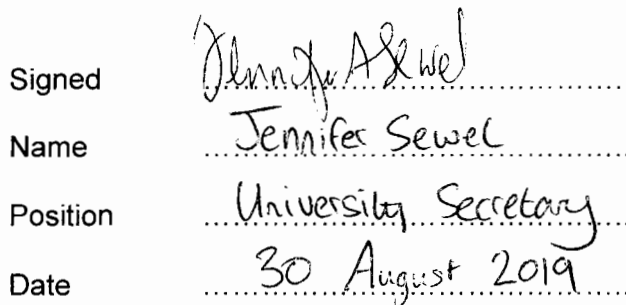 Signed Jennifer A Sewel
Name Jennifer Sewel
Position University Secretary
Date 30 August 2019